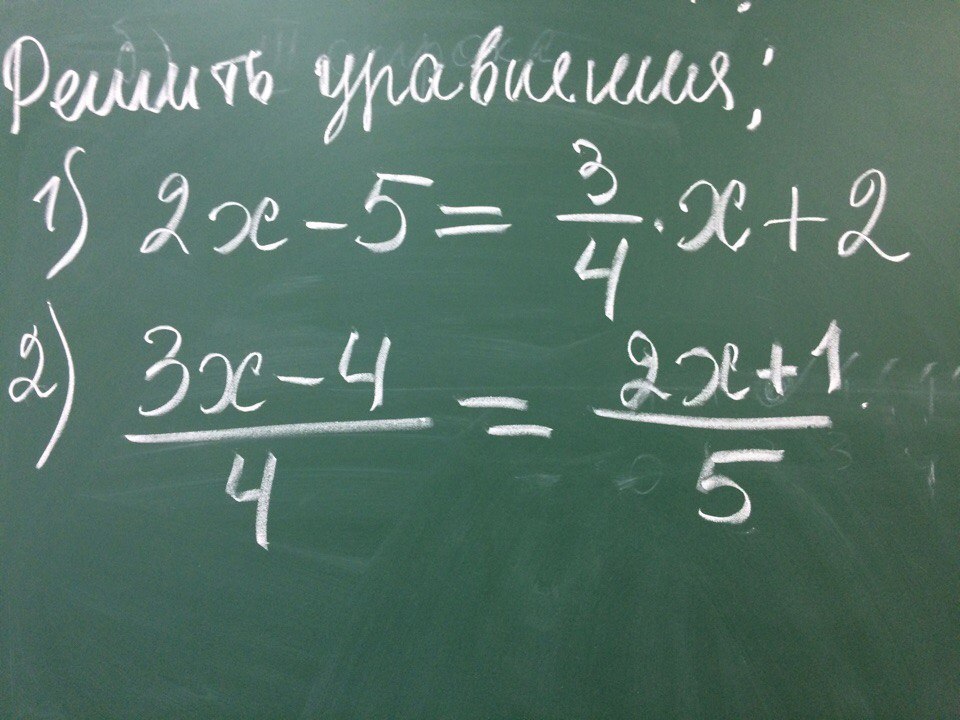 Решить уравнения:
1) 2x - 5 = 3/4 · x + 2
2) (3x - 4)/4 = (2x + 1)/5